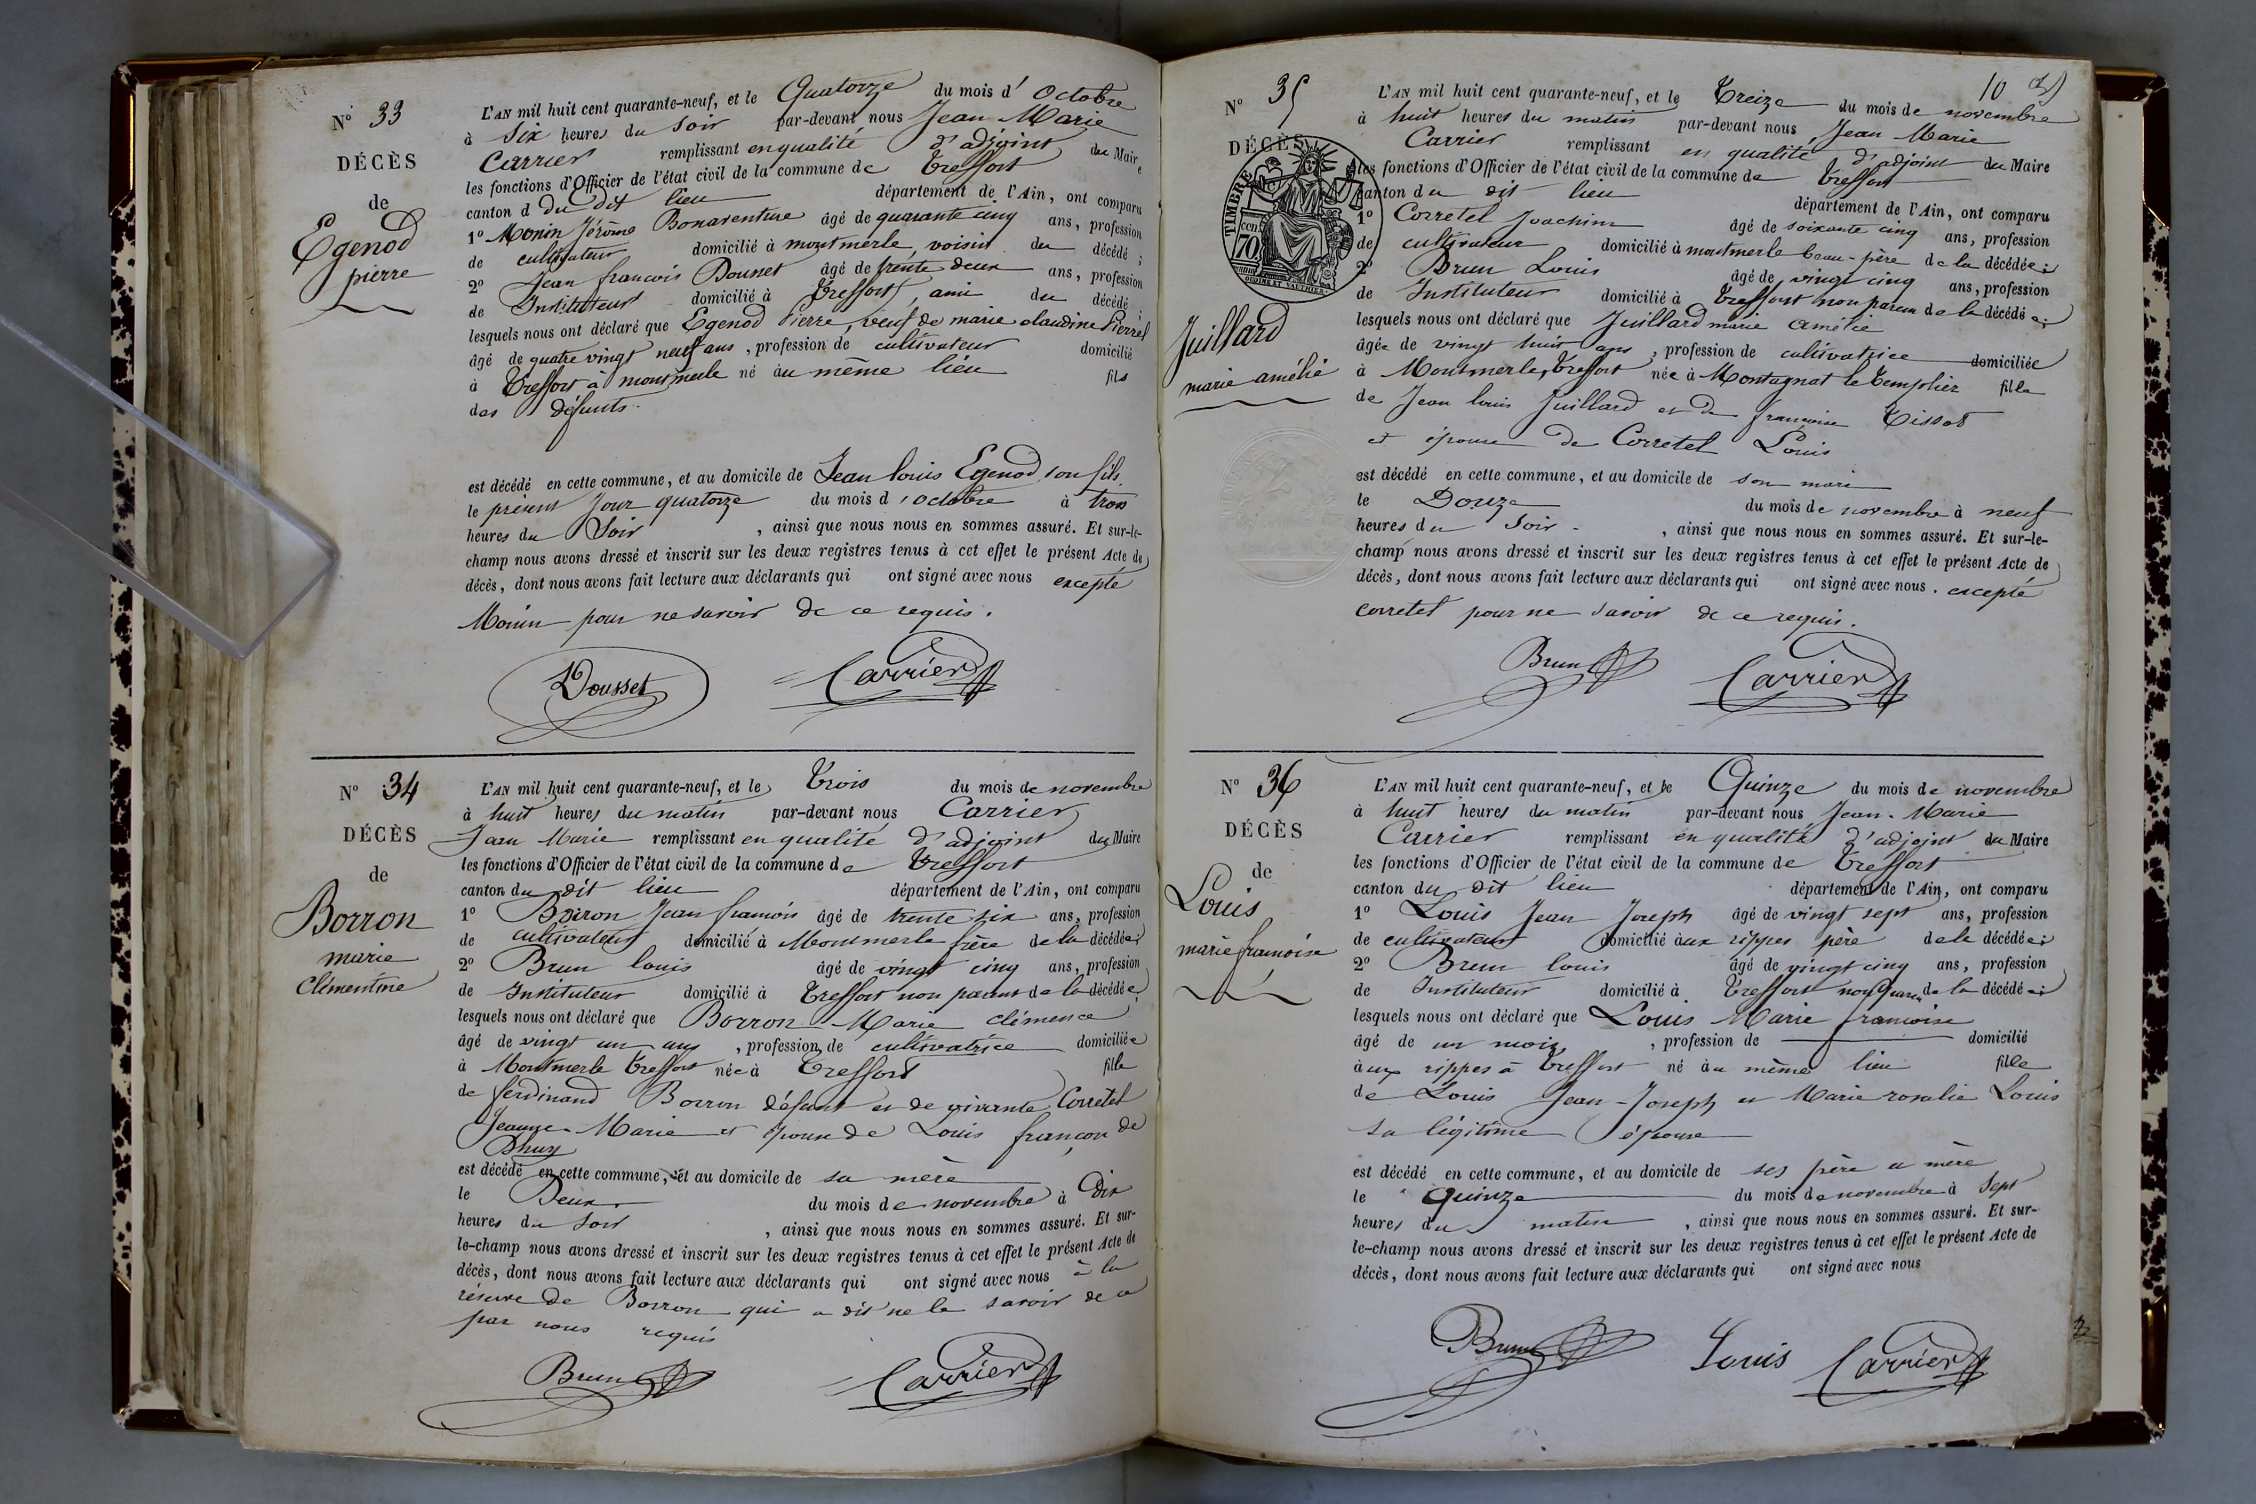 N° 33
DÉCÈS
de
Egenod
pierre
L'AN mil huit cent quarante-neuf, et le Quatorze du mois d' Octobre
à six heures du soir par-devant nous Jean Marie
Carrier remplissant en qualité d'adjoint du Maire
les fonctions d'Officier de l'état civil de la commune de Treffort
canton d du dit lieu département de l'Ain, ont comparu
1° Monin Jérôme Bonaventure âgé de quarante cinq ans, profession
de cultivateur domicilié à montmerle, voisin du décédé ;
2° Jean francois Dousset âgé de trente deux ans, profession
de Instituteur domicilié à Treffort, ami du décédé ;
lesquels nous ont déclaré que Egenod Pierre, veuf de marie claudine Pierrel
âgé de quatre vingt neuf ans, profession de cultivateur domicilié
à Treffort à montmerle né au même lieu fils
des défunts.
est décédé en cette commune, et au domicile de Jean louis Egenod, son fils
le présent Jour quatorze du mois d'octobre à trois
heures du Soir, ainsi que nous nous en sommes assuré. Et sur-le-
champ nous avons dressé et inscrit sur les deux registres tenus à cet effet le présent Acte de
décès, dont nous avons fait lecture aux déclarants qui ont signé avec nous excepté
Monin pour ne savoir de ce requis.
Dousset Carrier
N° 34
DÉCÈS
de
Borron
marie
Clémentine
L'AN mil huit cent quarante-neuf, et le Trois du mois de novembre
à huit heures du matin par-devant nous Carrier
Jean Marie remplissant en qualité d'adjoint du Maire
les fonctions d'Officier de l'état civil de la commune de Treffort
canton du dit lieu département de l'Ain, ont comparu
1° Borron Jean francois âgé de trente six ans, profession
de cultivateur domicilié à Montmerle frère de la décédée ;
2° Brun louis âgé de vingt cinq ans, profession
de Instituteur domicilié à Treffort non parent de la décédée ;
lesquels nous ont déclaré que Borron Marie clémence
âgé de vingt un ans, profession de cultivatrice domiciliée
à Montmerle Treffort née à Treffort fille
de ferdinand Borron défunt et de vivante Corretel
Jeanne-Marie et épouse de Louis françois de
Dhuy
est décédé en cette commune, et au domicile de sa mère
le Deux du mois de novembre à Dix
heures du soir, ainsi que nous nous en sommes assuré. Et sur-
le-champ nous avons dressé et inscrit sur les deux registres tenus à cet effet le présent Acte de
décès, dont nous avons fait lecture aux déclarants qui ont signé avec nous à la
réserve de Borron qui a dit ne le savoir de ce
par nous requis
Brun Carrier
10
N° 35
DÉCÈS
TIMBRE
70 cen
Juillard
marie amélie
L'AN mil huit cent quarante-neuf, et le Treize du mois de novembre
à huit heures du matin par-devant nous Jean Marie
Carrier remplissant en qualité d'adjoint du Maire
les fonctions d'Officier de l'état civil de la commune de Treffort
canton du dit lieu département de l'Ain, ont comparu
1° Corretel Joachim âgé de soixante cinq ans, profession
de cultivateur domicilié à montmerle beau-père de la décédée ;
2° Brun Louis âgé de vingt cinq ans, profession
de Instituteur domicilié à Treffort non parent de la décédée ;
lesquels nous ont déclaré que Juillard marie amélie
âgée de vingt huit ans, profession de cultivatrice domiciliée
à Montmerle, Treffort née à Montagnat le Templier fille
de Jean louis Juillard et de francoise Tissot
et épouse de Corretel Louis
est décédé en cette commune, et au domicile de son mari
le Douze du mois de novembre à neuf
heures du Soir, ainsi que nous nous en sommes assuré. Et sur-le-
champ nous avons dressé et inscrit sur les deux registres tenus à cet effet le présent Acte de
décès, dont nous avons fait lecture aux déclarants qui ont signé avec nous. excepté
corretel pour ne savoir de ce requis.
Brun Carrier
N° 36
DÉCÈS
de
Louis
marie francoise
L'AN mil huit cent quarante-neuf, et le Quinze du mois de novembre
à huit heures du matin par-devant nous Jean-Marie
Carrier remplissant en qualité d'adjoint du Maire
les fonctions d'Officier de l'état civil de la commune de Treffort
canton du dit lieu département de l'Ain, ont comparu
1° Louis Jean Joseph âgé de vingt sept ans, profession
de cultivateur domicilié aux rippes père de la décédée ;
2° Brun louis âgé de vingt cinq ans, profession
de Instituteur domicilié à Treffort non parent de la décédée ;
lesquels nous ont déclaré que Louis Marie francoise
âgé de un mois, profession de domicilié
aux rippes à Treffort né au même lieu fille
de Louis Jean-Joseph et Marie rosalie Louis
sa légitime épouse
est décédé en cette commune, et au domicile de ses père et mère
le quinze du mois de novembre à Sept
heures du matin, ainsi que nous nous en sommes assuré. Et sur-
le-champ nous avons dressé et inscrit sur les deux registres tenus à cet effet le présent Acte de
décès, dont nous avons fait lecture aux déclarants qui ont signé avec nous
Brun Louis Carrier